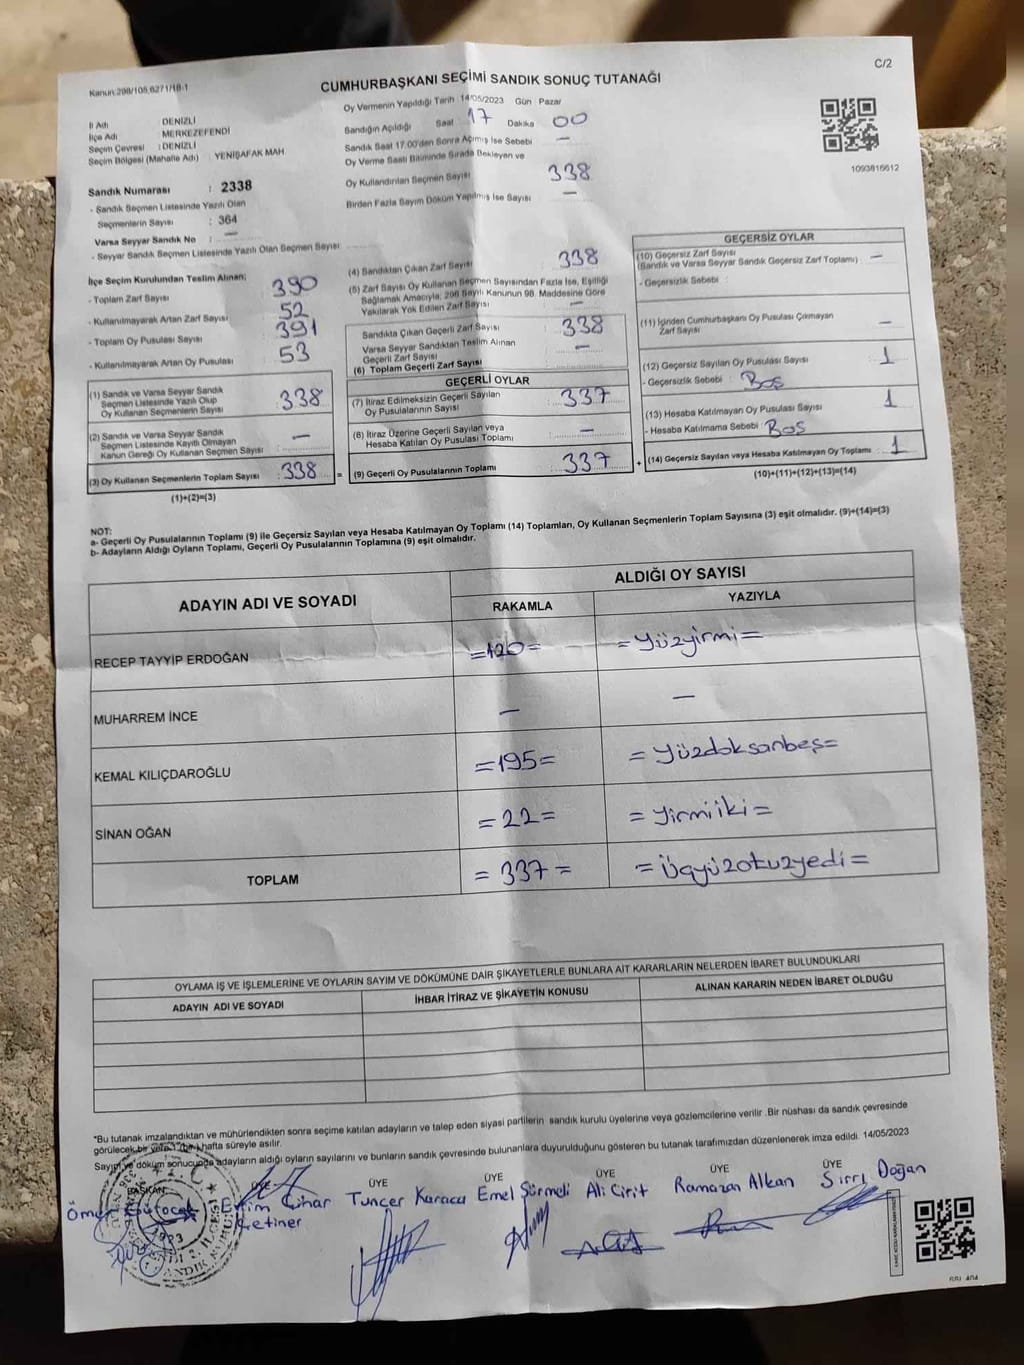 Kanun:298/105,6271/18-1
CUMHURBAŞKANI SEÇİMİ SANDIK SONUÇ TUTANAĞI
C/2
İl Adı : DENİZLİ
İlçe Adı : MERKEZEFENDİ
Seçim Çevresi : DENİZLİ
Seçim Bölgesi (Mahalle Adı) : YENİŞAFAK MAH.
Sandık Numarası : 2338
- Sandık Seçmen Listesinde Yazılı Olan
Seçmenlerin Sayısı : 364
Varsa Seyyar Sandık No : —
- Seyyar Sandık Seçmen Listesinde Yazılı Olan Seçmen Sayısı
Oy Vermenin Yapıldığı Tarih 14/05/2023 Gün Pazar
Sandığın Açıldığı Saat 17 Dakika 00
Sandık Saat 17.00'den Sonra Açılmış İse Sebebi —
Oy Verme Saati Bitiminde Sırada Bekleyen ve
Oy Kullandırılan Seçmen Sayısı 338
Birden Fazla Sayım Döküm Yapılmış İse Sayısı —
1093816612
İlçe Seçim Kurulundan Teslim Alınan;
- Toplam Zarf Sayısı 390
- Kullanılmayarak Artan Zarf Sayısı 52
- Toplam Oy Pusulası Sayısı 391
- Kullanılmayarak Artan Oy Pusulası 53
(1) Sandık ve Varsa Seyyar Sandık
Seçmen Listesinde Yazılı Olup
Oy Kullanan Seçmenlerin Sayısı : 338
(2) Sandık ve Varsa Seyyar Sandık
Seçmen Listesinde Kayıtlı Olmayan
Kanun Gereği Oy Kullanan Seçmen Sayısı : —
(3) Oy Kullanan Seçmenlerin Toplam Sayısı : 338 =
(1)+(2)=(3)
(4) Sandıktan Çıkan Zarf Sayısı 338
(5) Zarf Sayısı Oy Kullanan Seçmen Sayısından Fazla İse, Eşitliği
Sağlamak Amacıyla, 298 Sayılı Kanunun 98. Maddesine Göre
Yakılarak Yok Edilen Zarf Sayısı —
Sandıkta Çıkan Geçerli Zarf Sayısı : 338
Varsa Seyyar Sandıktan Teslim Alınan
Geçerli Zarf Sayısı : —
(6) Toplam Geçerli Zarf Sayısı
GEÇERLİ OYLAR
(7) İtiraz Edilmeksizin Geçerli Sayılan
Oy Pusulalarının Sayısı : 337
(8) İtiraz Üzerine Geçerli Sayılan veya
Hesaba Katılan Oy Pusulası Toplamı : —
(9) Geçerli Oy Pusulalarının Toplamı : 337 +
GEÇERSİZ OYLAR
(10) Geçersiz Zarf Sayısı
(Sandık ve Varsa Seyyar Sandık Geçersiz Zarf Toplamı) : —
- Geçersizlik Sebebi :
(11) İçinden Cumhurbaşkanı Oy Pusulası Çıkmayan
Zarf Sayısı : —
(12) Geçersiz Sayılan Oy Pusulası Sayısı : 1
- Geçersizlik Sebebi : Boş
(13) Hesaba Katılmayan Oy Pusulası Sayısı : 1
- Hesaba Katılmama Sebebi : Boş
(14) Geçersiz Sayılan veya Hesaba Katılmayan Oy Toplamı : 1
(10)+(11)+(12)+(13)=(14)
NOT:
a- Geçerli Oy Pusulalarının Toplamı (9) ile Geçersiz Sayılan veya Hesaba Katılmayan Oy Toplamı (14) Toplamları, Oy Kullanan Seçmenlerin Toplam Sayısına (3) eşit olmalıdır. (9)+(14)=(3)
b- Adayların Aldığı Oyların Toplamı, Geçerli Oy Pusulalarının Toplamına (9) eşit olmalıdır.
ADAYIN ADI VE SOYADI ALDIĞI OY SAYISI
RAKAMLA YAZIYLA
RECEP TAYYİP ERDOĞAN =120= =Yüzyirmi=
MUHARREM İNCE — —
KEMAL KILIÇDAROĞLU =195= =Yüzdoksanbeş=
SİNAN OĞAN =22= =Yirmiiki=
TOPLAM =337= =Üçyüzotuzyedi=
OYLAMA İŞ VE İŞLEMLERİNE VE OYLARIN SAYIM VE DÖKÜMÜNE DAİR ŞİKAYETLERLE BUNLARA AİT KARARLARIN NELERDEN İBARET BULUNDUKLARI
ADAYIN ADI VE SOYADI İHBAR İTİRAZ VE ŞİKAYETİN KONUSU ALINAN KARARIN NEDEN İBARET OLDUĞU
"Bu tutanak imzalandıktan ve mühürlendikten sonra seçime katılan adayların ve talep eden siyasi partilerin sandık kurulu üyelerine veya gözlemcilerine verilir .Bir nüshası da sandık çevresinde
görülecek bir yere 1 (bir) hafta süreyle asılır.
Sayım ve döküm sonucunda adayların aldığı oyların sayılarını ve bunların sandık çevresinde bulunanlara duyurulduğunu gösteren bu tutanak tarafımızdan düzenlenerek imza edildi. 14/05/2023
BAŞKAN ÜYE ÜYE ÜYE ÜYE ÜYE ÜYE
Ömer Cihar Tunçer Karaca Emel Sürmeli Ali Cirit Ramazan Alkan Sırrı Doğan
Çetiner